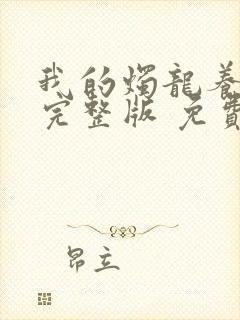 我的燭龍養
完整版 免費
昂立